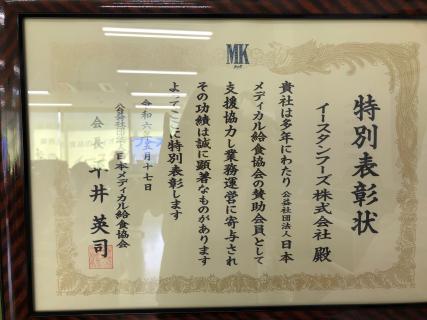 MK
特別表彰状
イースタンフーズ株式会社 殿
貴社は多年にわたり公益社団法人日本
メディカル給食協会の賛助会員として
支援協力し業務運営に寄与され
その功績は誠に顕著なものがあります
よってここに特別表彰します
令和六年五月十七日
公益社団法人日本メディカル給食協会
会長 平井英司